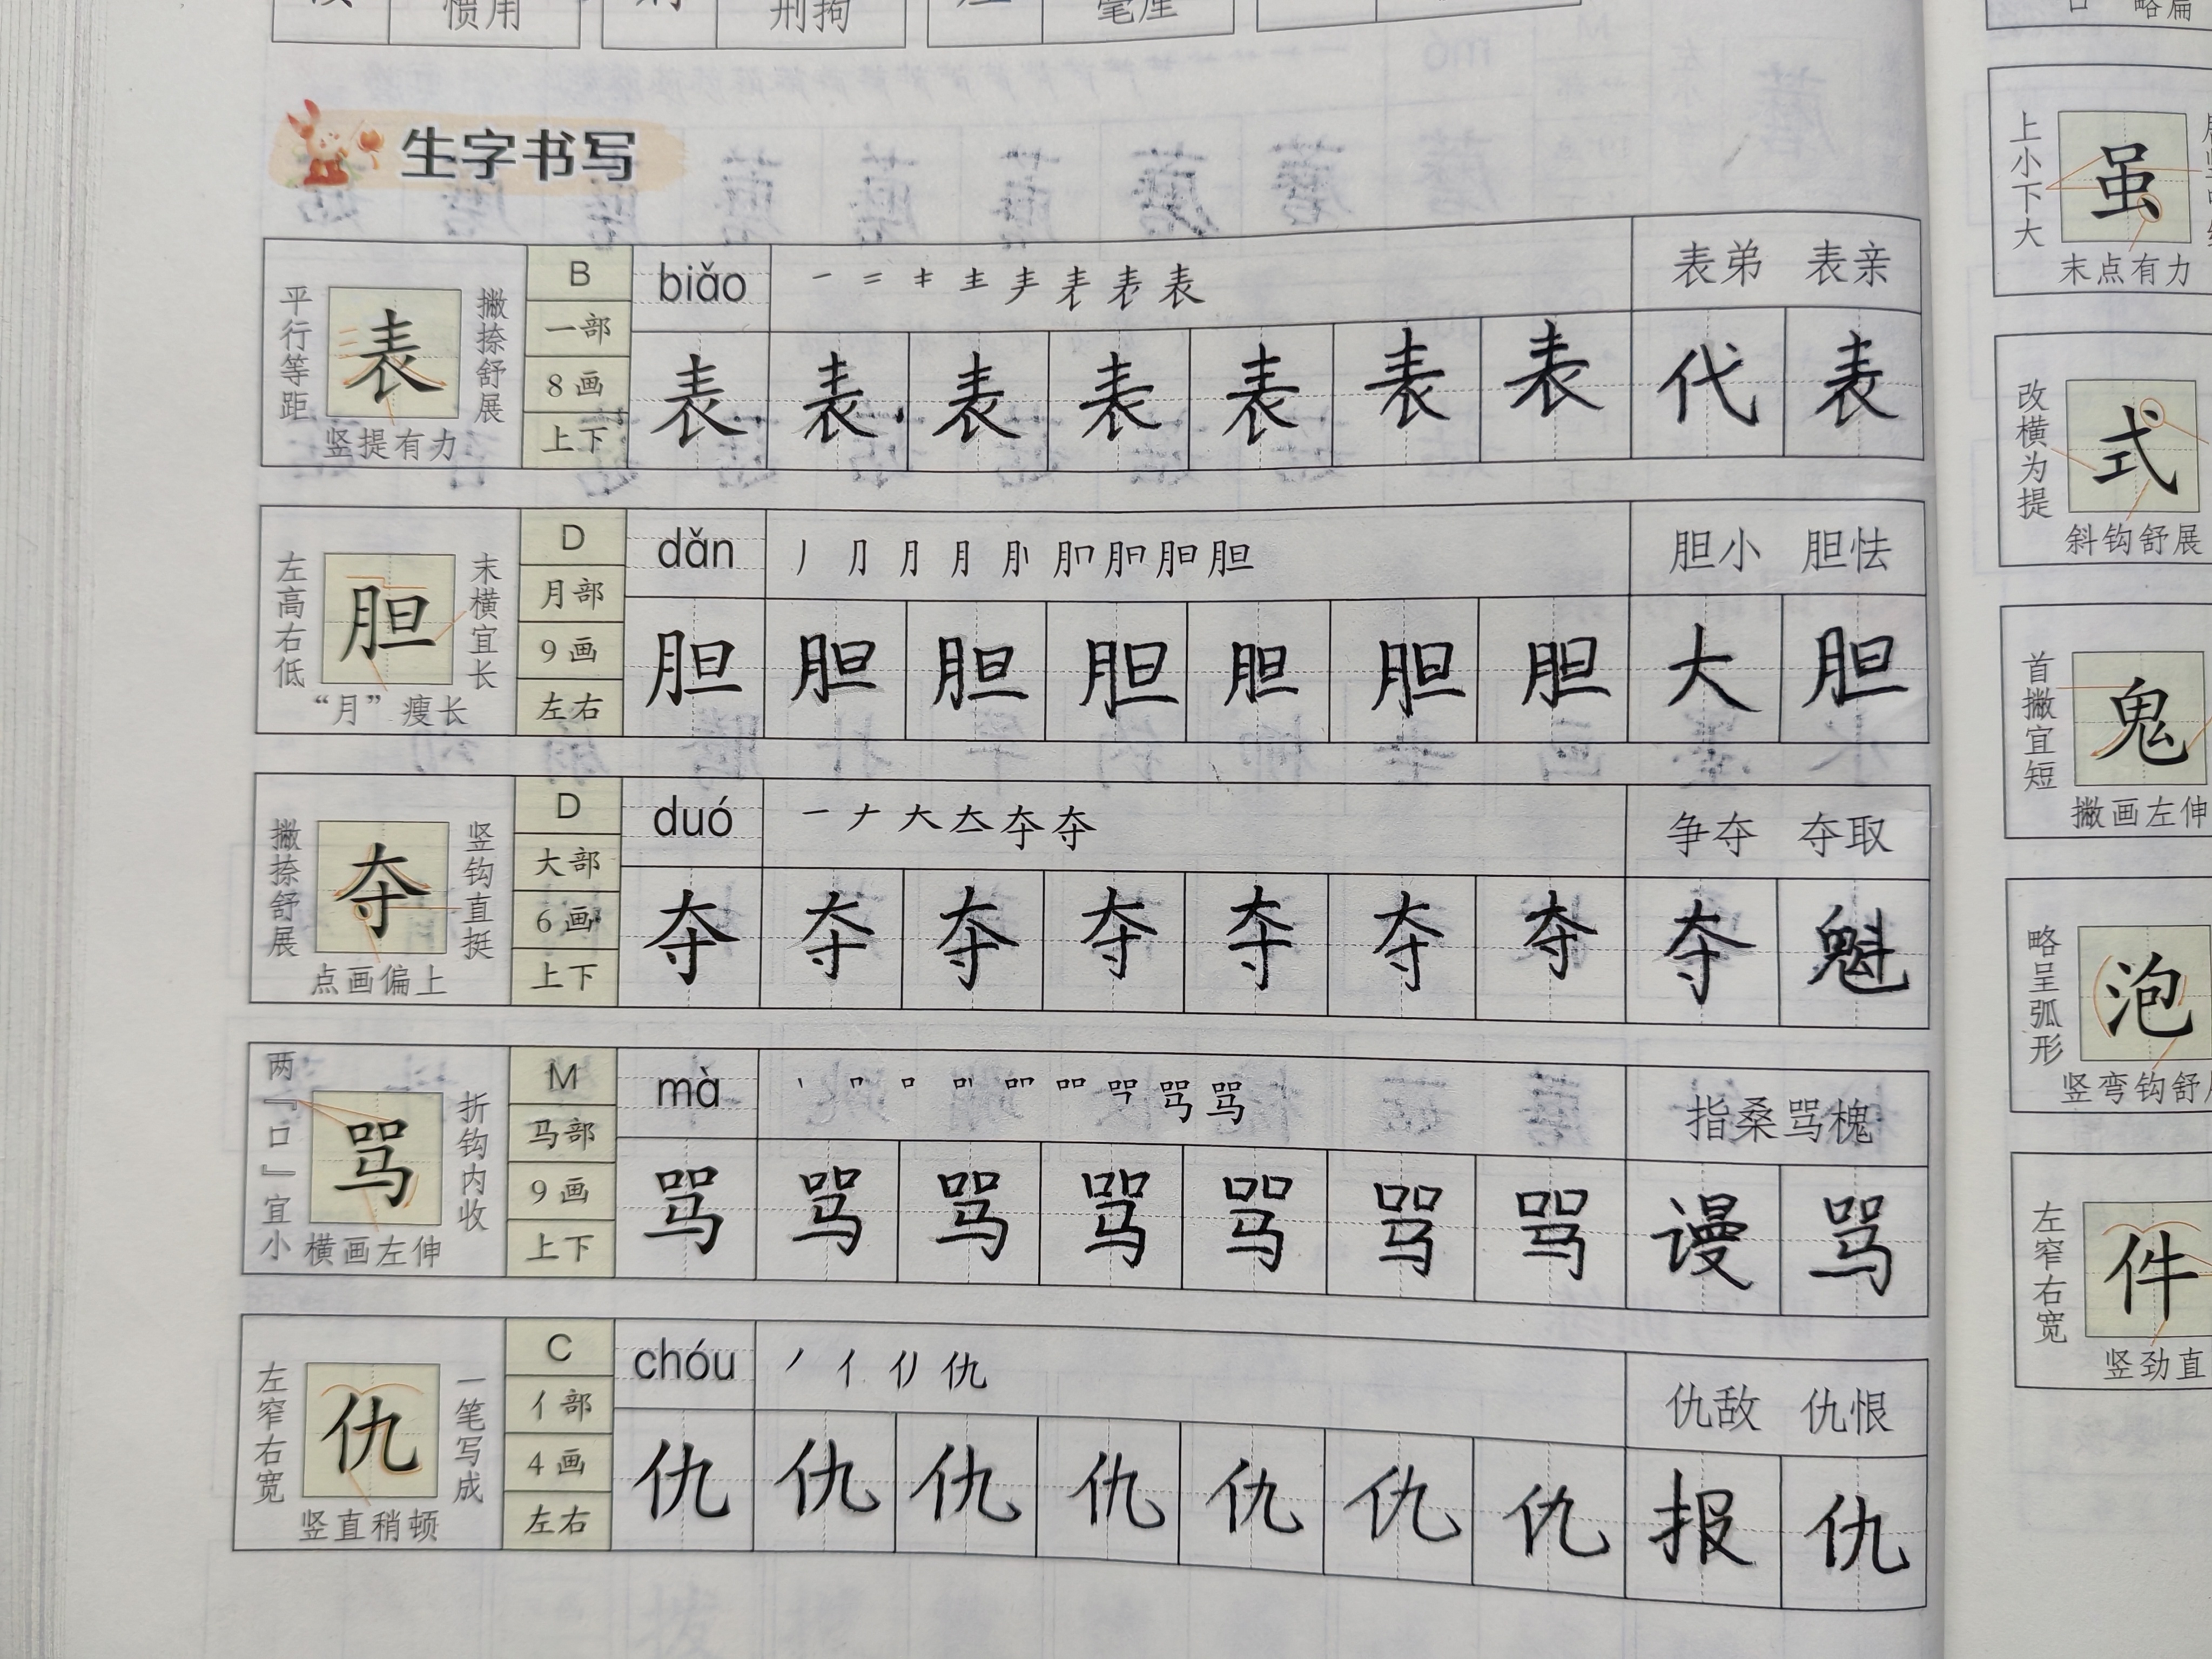 惯用 刑拘 毫厘
生字书写
平行等距 表 撇捺舒展 竖提有力
B 一部 8画 上下
biǎo 一 二 キ 主 表 表弟 表亲
表 表 表 表 表 表 表 代 表
左高右低 胆 末横宜长 “月”瘦长
D 月部 9画 左右
dǎn 丿 月 月 月 胆 胆小 胆怯
胆 胆 胆 胆 胆 胆 胆 大 胆
撇捺舒展 夺 竖钩直挺 点画偏上
D 大部 6画 上下
duó 一 ナ 大 夺 夺 争夺 夺取
夺 夺 夺 夺 夺 夺 夺 夺 魁
两『口』宜小 骂 折钩内收 横画左伸
M 马部 9画 上下
mà 丨 口 口 吅 骂 骂 指桑骂槐
骂 骂 骂 骂 骂 骂 骂 谩 骂
左窄右宽 仇 一笔写成 竖直稍顿
C 亻部 4画 左右
chóu 丿 亻 仇 仇敌 仇恨
仇 仇 仇 仇 仇 仇 仇 报 仇
略扁
上小下大 虽 末点有力
改横为提 式 斜钩舒展
首撇宜短 鬼 撇画左伸
略呈弧形 泡 竖弯钩舒
左窄右宽 件 竖劲直